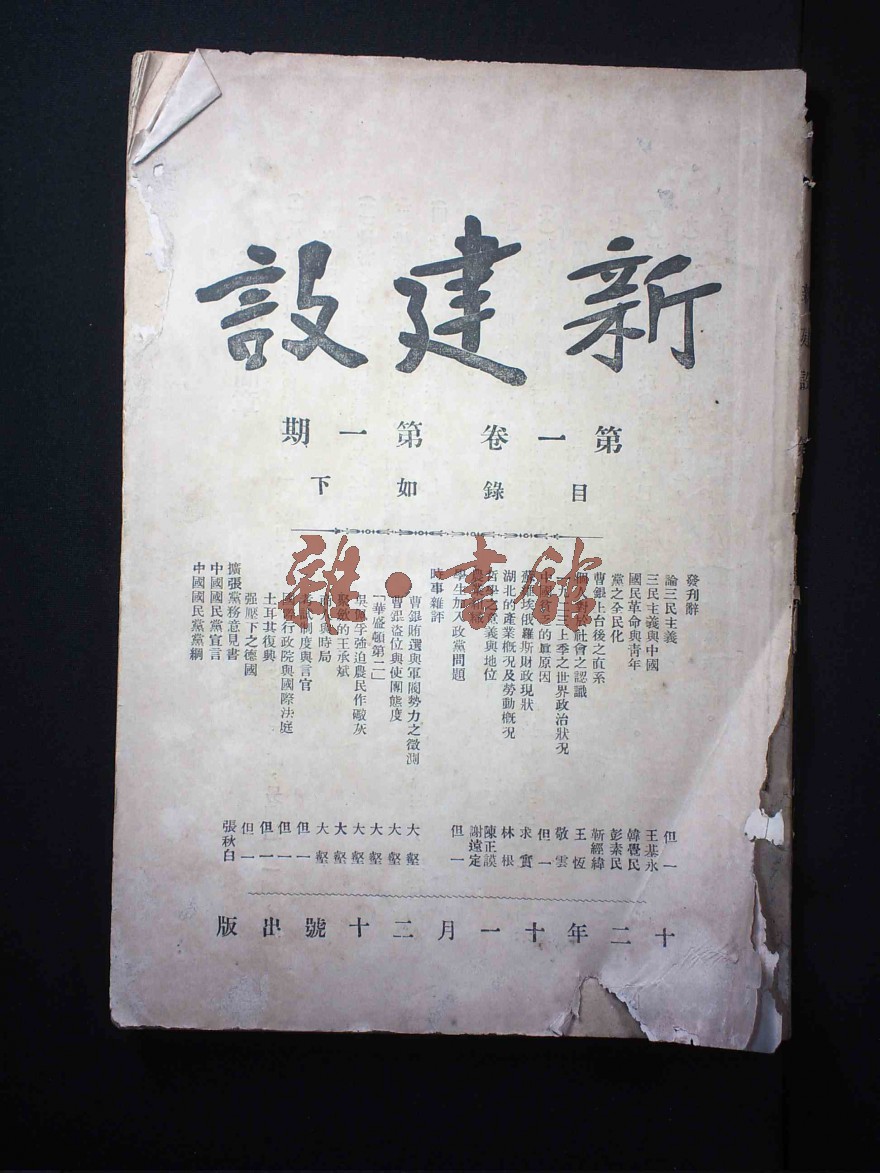 新建設
第一卷第一期
目錄如下
發刊辭
論三民主義
三民主義與中國
國民革命與青年
黨之全民化
曹錕上台後之直系
對於社會之認識
上季之世界政治狀況
中國 的 原因
蘇維埃俄羅斯財政現狀
湖北的產業概況及勞動概況
哲學之意義與地位
農業
學生加入政黨問題
時事雜評
曹錕賄選與軍閥勢力之微測
曹錕盜位與使團態度
「華盛頓第二」
吳佩孚強迫農民作礮灰
聚斂的王承斌
與時局
制度與言官
國際行政院與國際法庭
土耳其復興
强壓下之德國
擴張黨務意見書
中國國民黨宣言
中國國民黨黨綱
但一
王基永
韓覺民
彭素民
靳經緯
王恆
敬雲
但一
求實
林根
陳正謨
謝遠定
但一
大壑
大壑
大壑
大壑
大壑
大壑
但一
但一
但一
但一
張秋白
十二年十一月二十號出版
雜·書館